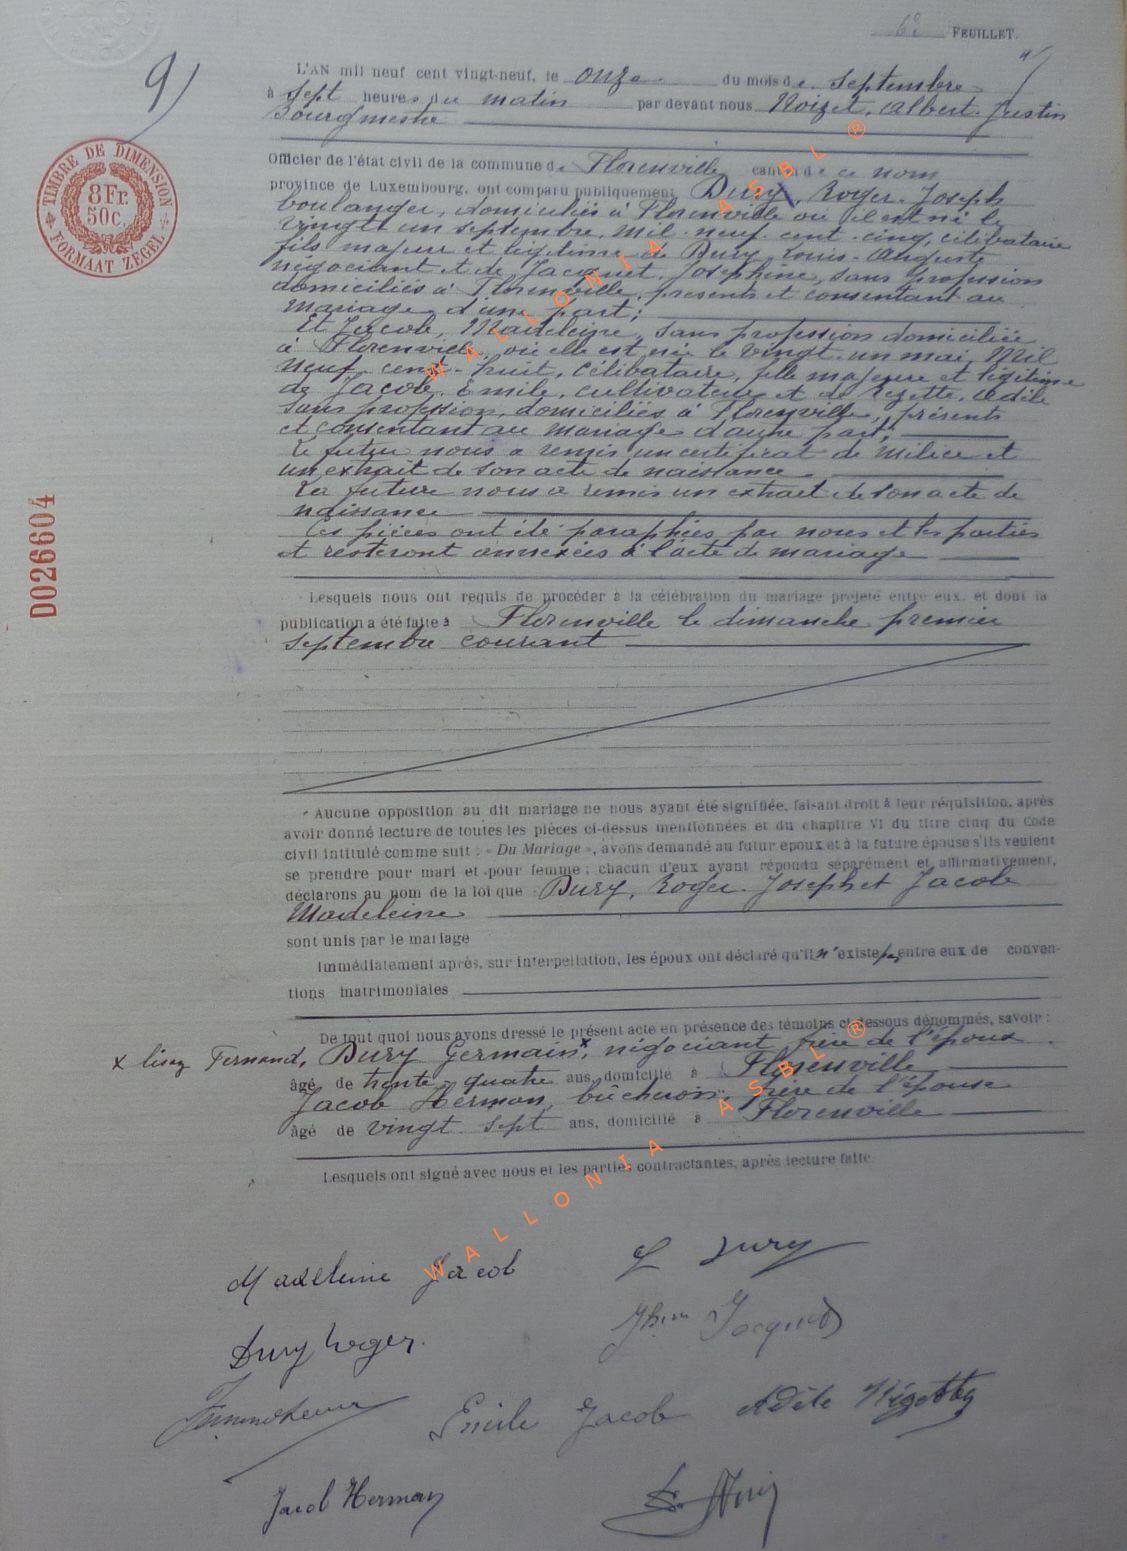 6e FEUILLET.
9)
L'AN mil neuf cent vingt-neuf, le onze du mois de septembre
à sept heures du matin par devant nous Noizet, Albert Justin
Bourgmestre
Officier de l'état civil de la commune de Florenville canton de ce nom
province de Luxembourg, ont comparu publiquement Dury, Roger Joseph
boulanger, domicilié à Florenville où il est né le
vingt un septembre, mil neuf cent cinq, célibataire
fils majeur et légitime de Dury, Louis-Auguste
négociant et de Jacquet, Joséphine, sans profession
domiciliés à Florenville, présents et consentant au
mariage, d'une part;
Et Jacob, Madeleine, sans profession domiciliée
à Florenville, où elle est née le vingt-un mai, Mil
neuf cent huit, célibataire, fille majeure et légitime
de Jacob, Emile, cultivateur et de Rezette, Adèle
sans profession, domiciliés à Florenville, présents
et consentant au mariage d'autre part;
Le futur nous a remis un certificat de milice et
un extrait de son acte de naissance
La future nous a remis un extrait de son acte de
naissance
Ces pièces ont été paraphées par nous et les parties
et resteront annexées à l'acte de mariage
Lesquels nous ont requis de procéder à la célébration du mariage projeté entre eux, et dont la
publication a été faite à Florenville le dimanche premier
septembre courant
Aucune opposition au dit mariage ne nous ayant été signifiée, faisant droit à leur réquisition, après
avoir donné lecture de toutes les pièces ci-dessus mentionnées et du chapitre VI du titre cinq du Code
civil intitulé comme suit : « Du Mariage », avons demandé au futur époux et à la future épouse s'ils veulent
se prendre pour mari et pour femme ; chacun d'eux ayant répondu séparément et affirmativement,
déclarons au nom de la loi que Dury, Roger Joseph et Jacob
Madeleine
sont unis par le mariage
Immédiatement après, sur interpellation, les époux ont déclaré qu'il n'existe pas entre eux de conven-
tions matrimoniales
De tout quoi nous avons dressé le présent acte en présence des témoins ci-dessous dénommés, savoir :
x lisez Fernand, Dury Germain x, négociant frère de l'époux
âgé de trente quatre ans, domicilié à Florenville
Jacob Herman, bûcheron, frère de l'épouse
âgé de vingt sept ans, domicilié à Florenville
Lesquels ont signé avec nous et les parties contractantes, après lecture faite.
Madeleine Jacob
L Dury
Dury Roger.
Jhine Jacquet
Emile Jacob
Adèle Rézette
Jacob Herman
TIMBRE DE DIMENSION
8 Fr.
50c.
FORMAAT ZEGEL
D026604
WALLONIA ASBL ®
WALLONIA ASBL ®